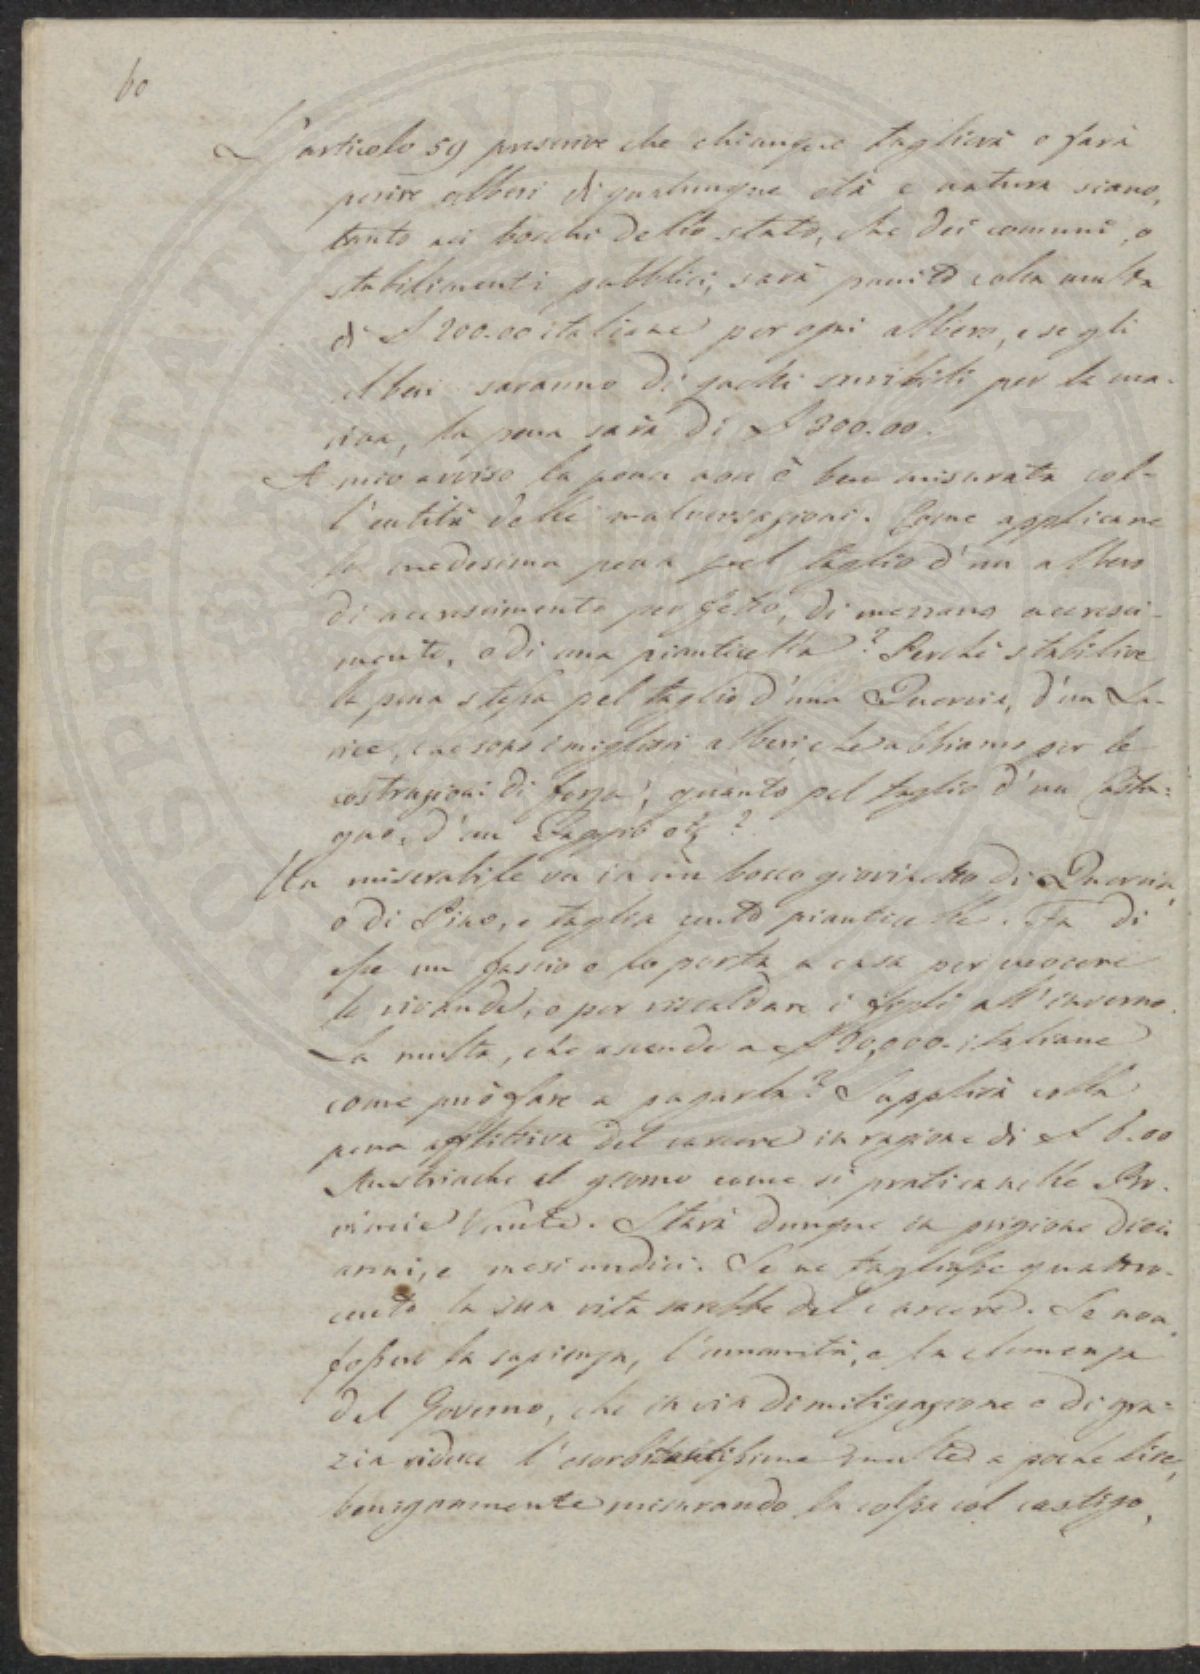 60
L'articolo 59 prescrive che chiunque taglierà o farà
perire alberi di qualunque età e natura siano,
tanto nei boschi dello stato, che dei comuni, o
stabilimenti pubblici, sarà punito colla multa
di £ 200.00 italiane per ogni albero, e se gli
alberi saranno di quelli servibili per la ma-
rina, la pena sarà di £ 300.00.
A mio avviso la pena non è ben misurata col-
l'entità delle malversazioni. Come applicare
la medesima pena pel taglio d'un albero
di accrescimento perfetto, di mezzano accresci-
mento, o di una pianticella? Perchè stabilire
la pena stessa pel taglio d'una Quercia, d'un La-
rice, che sono i migliori alberi che abbiamo per le
costruzioni di forza, quanto pel taglio d'un Casta=
gno, d'un Faggio etc?
Un miserabile va in un bosco giovinetto di Quercia
o di Pino, e taglia cento pianticelle. Fa di
esse un fascio e lo porta a casa per cuocere
le vivande, o per riscaldare i figli all'inverno.
La multa, che ascende a £ 20,000. italiane
come può fare a pagarla? Supplirà colla
pena afflittiva del carcere in ragione di £ 6.00
Austriache al giorno come si pratica nelle Pro-
vincie Venete. Starà dunque in prigione dieci
anni, e mesi undici. Se ne tagliasse quattro-
cento la sua vita sarebbe del carcere. Se non
fossero la sapienza, l'umanità, e la clemenza
del Governo, che in via di mitigazione o di gra=
zia riduce l'esorbitantissime multe a poche lire,
benignamente misurando la colpa col castigo,